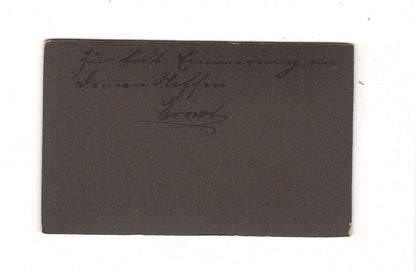 Zur frdl. Erinnerung an
Deinen Neffen
Ernst